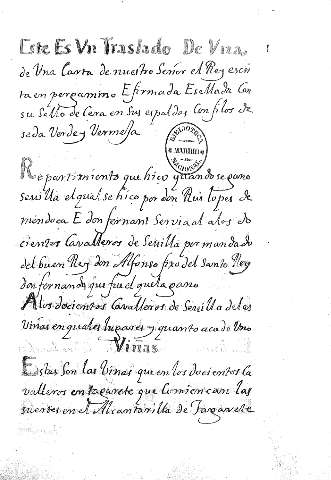 Este Es Vn Traslado De Vna,
de Una Carta de nuestro Señor el Rey escri
ta en pergamino E firmada E sellada Con
su Sello de Cera en sus espaldas Con filos de
seda Verde y Vermeja
BIBLIOTECA NACIONAL
MADRID
Repartimiento que hico quando se gano
Sevilla el qual se hico por don Ruis lopes de
mendoca E don fernant Servia al a los do
cientos Cavalleros de Sevilla por mandado
del buen Rey don Alfonso fixo del Santo Rey
don fernando que fue el que la gano
A los docientos Cavalleros de Sevilla de las
Viñas en quales lugares y quanto a cado Uno
Viñas
Estas Son las Viñas que en los docientos Ca
valleros en tagarete que Comiencan las
suertes en el Alcantarilla de Tagarete